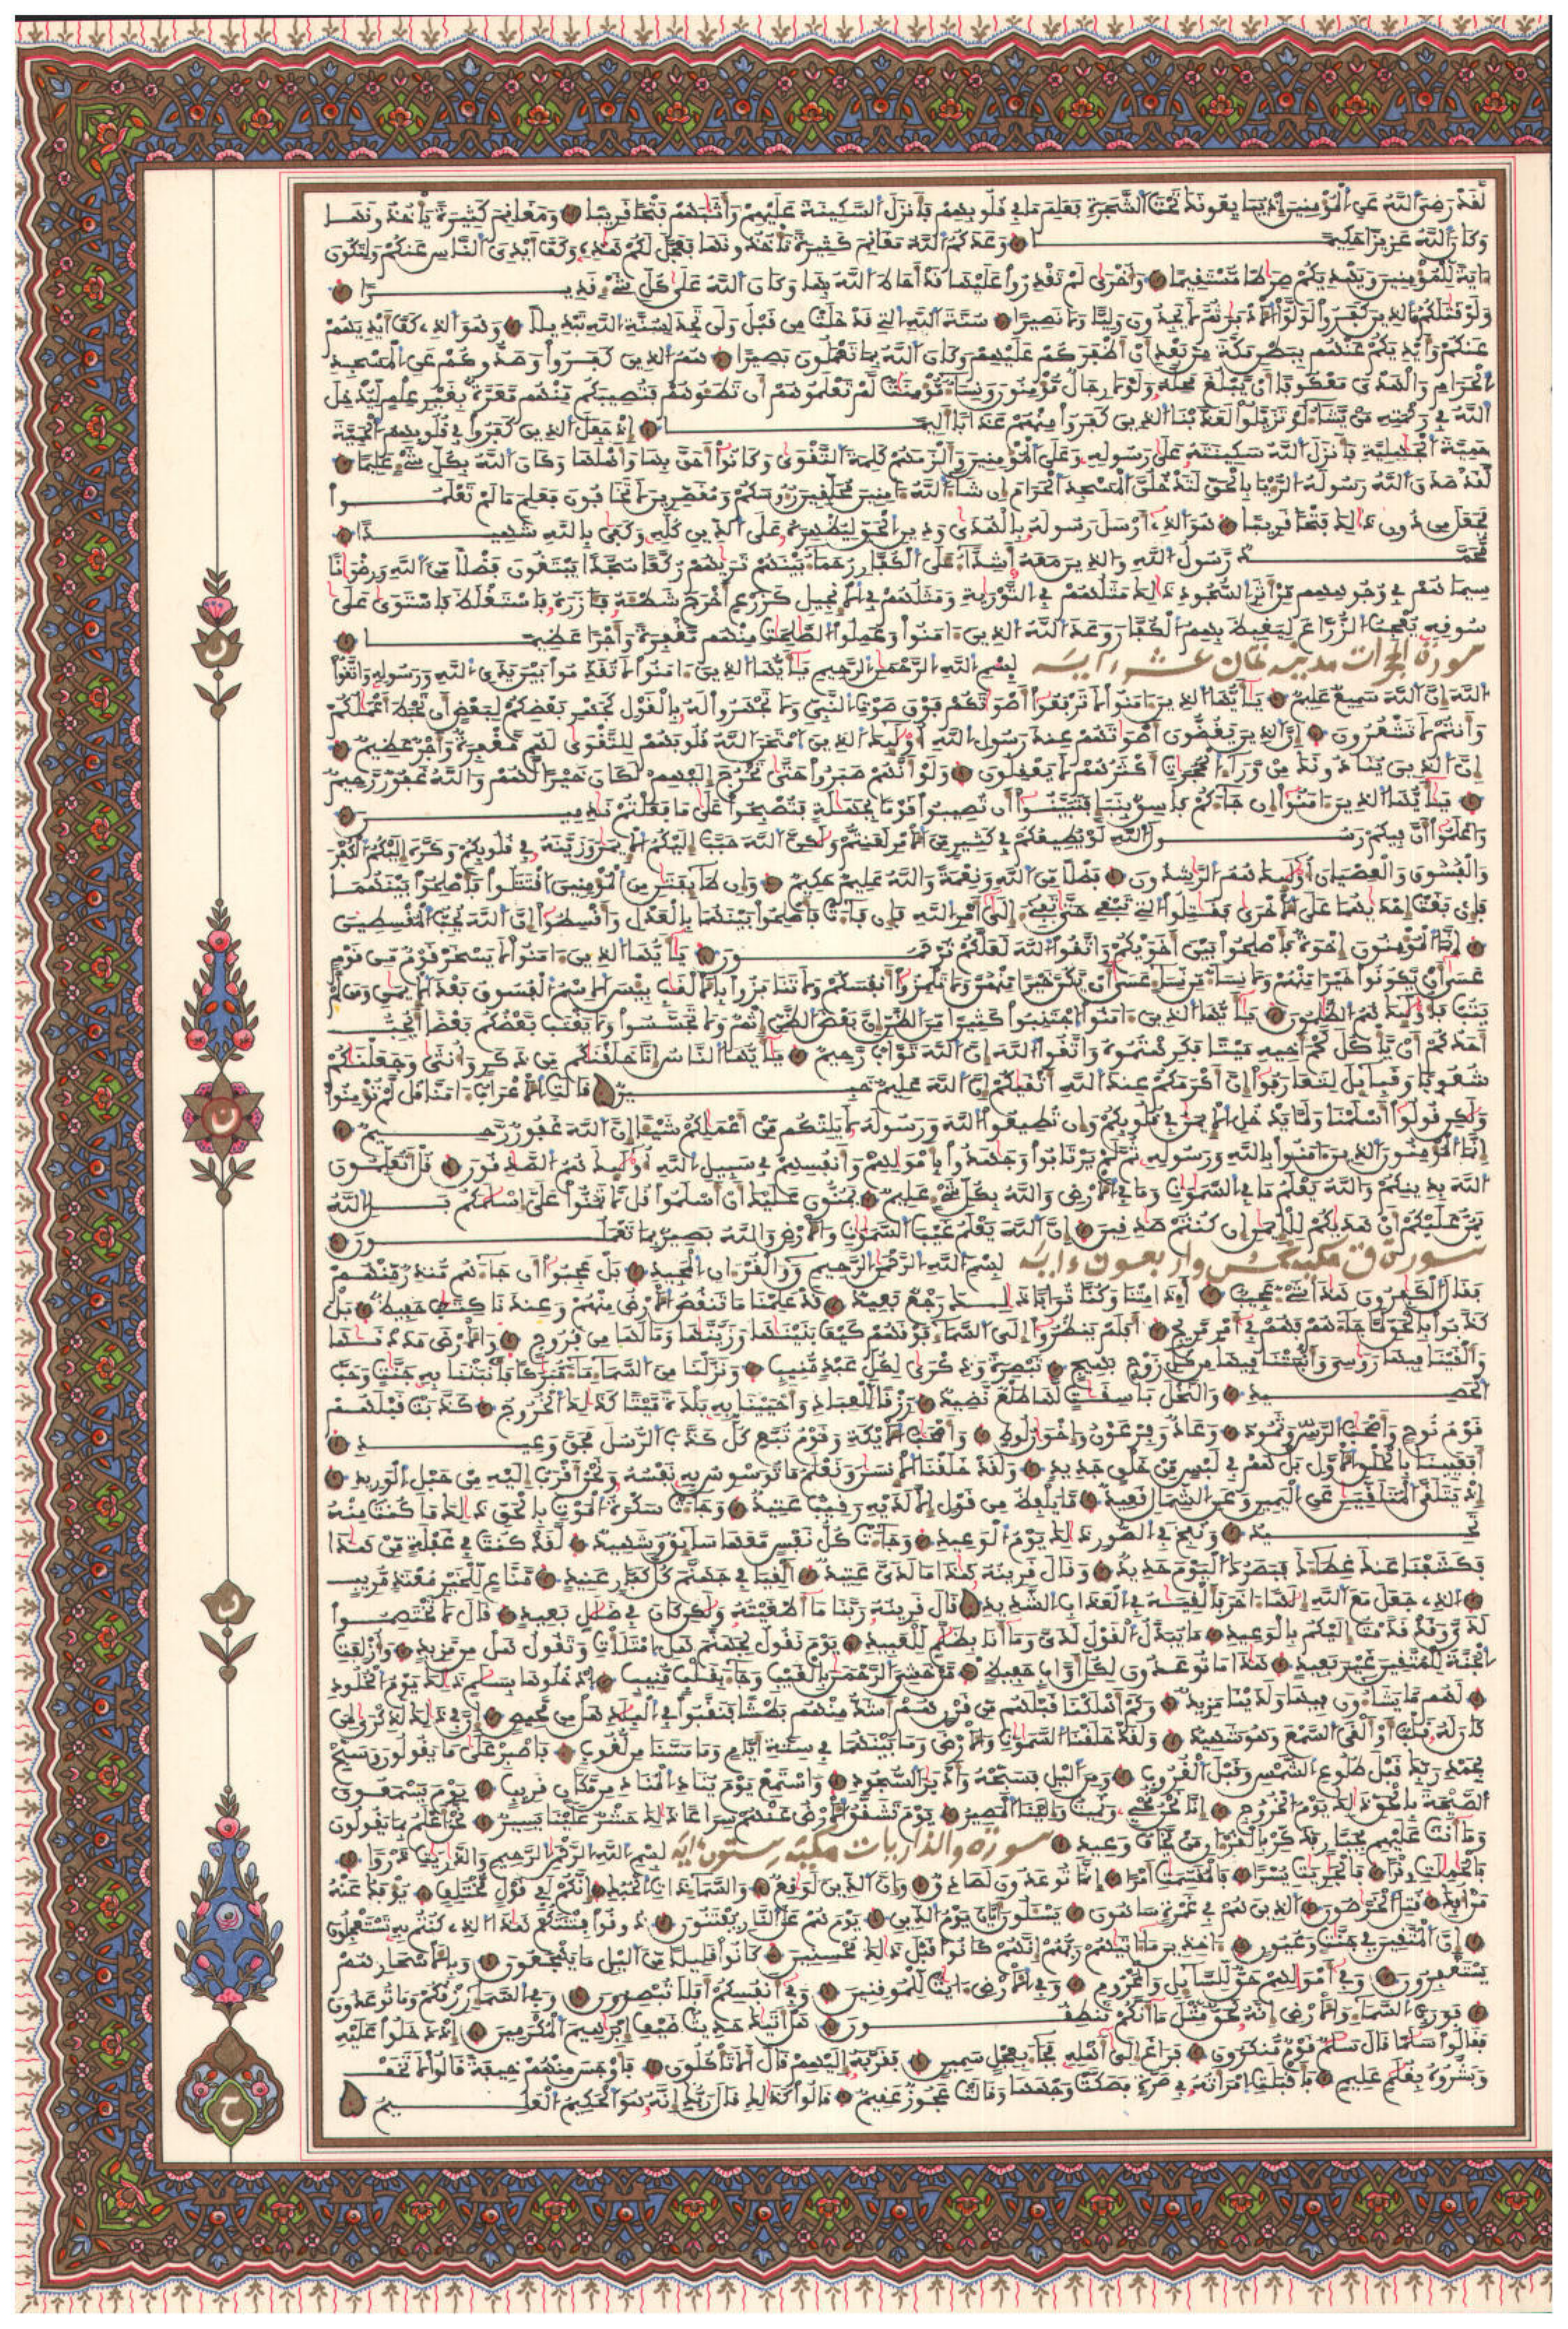 لقد رضي الله عن المؤمنين إذ يبايعونك تحت الشجرة فعلم ما في قلوبهم فأنزل السكينة عليهم وأثابهم فتحا قريبا ومغانم كثيرة يأخذونها
وكان الله عزيزا حكيما وعدكم الله مغانم كثيرة تأخذونها فعجل لكم هذه وكف أيدي الناس عنكم ولتكون
ءاية للمؤمنين ويهديكم صراطا مستقيما وأخرى لم تقدروا عليها قد أحاط الله بها وكان الله على كل شيء قديرا
ولو قاتلكم الذين كفروا لولوا الأدبار ثم لا يجدون وليا ولا نصيرا سنة الله التي قد خلت من قبل ولن تجد لسنة الله تبديلا وهو الذي كف أيديهم
عنكم وأيديكم عنهم ببطن مكة من بعد أن أظفركم عليهم وكان الله بما تعملون بصيرا هم الذين كفروا وصدوكم عن المسجد
الحرام والهدي معكوفا أن يبلغ محله ولولا رجال مؤمنون ونساء مؤمنات لم تعلموهم أن تطئوهم فتصيبكم منهم معرة بغير علم ليدخل
الله في رحمته من يشاء لو تزيلوا لعذبنا الذين كفروا منهم عذابا أليما إذ جعل الذين كفروا في قلوبهم الحمية
حمية الجاهلية فأنزل الله سكينته على رسوله وعلى المؤمنين وألزمهم كلمة التقوى وكانوا أحق بها وأهلها وكان الله بكل شيء عليما
لقد صدق الله رسوله الرءيا بالحق لتدخلن المسجد الحرام إن شاء الله ءامنين محلقين رءوسكم ومقصرين لا تخافون فعلم ما لم تعلموا
فجعل من دون ذلك فتحا قريبا هو الذي أرسل رسوله بالهدى ودين الحق ليظهره على الدين كله وكفى بالله شهيدا
محمد رسول الله والذين معه أشداء على الكفار رحماء بينهم تريهم ركعا سجدا يبتغون فضلا من الله ورضوانا
سيماهم في وجوههم من أثر السجود ذلك مثلهم في التورية ومثلهم في الإنجيل كزرع أخرج شطئه فآزره فاستغلظ فاستوى على
سوقه يعجب الزراع ليغيظ بهم الكفار وعد الله الذين ءامنوا وعملوا الصالحات منهم مغفرة وأجرا عظيما
سورة الحجرات مدنية ثمان عشر ءاية بسم الله الرحمن الرحيم يأيها الذين ءامنوا لا تقدموا بين يدي الله ورسوله واتقوا
الله إن الله سميع عليم يأيها الذين ءامنوا لا ترفعوا أصواتكم فوق صوت النبيء ولا تجهروا له بالقول كجهر بعضكم لبعض أن تحبط أعمالكم
وأنتم لا تشعرون إن الذين يغضون أصواتهم عند رسول الله أولئك الذين امتحن الله قلوبهم للتقوى لهم مغفرة وأجر عظيم
إن الذين ينادونك من وراء الحجرات أكثرهم لا يعقلون ولو أنهم صبروا حتى تخرج إليهم لكان خيرا لهم والله غفور رحيم
يأيها الذين ءامنوا إن جاءكم فاسق بنبإ فتبينوا أن تصيبوا قوما بجهالة فتصبحوا على ما فعلتم نادمين
واعلموا أن فيكم رسول الله لو يطيعكم في كثير من الأمر لعنتم ولكن الله حبب إليكم الإيمان وزينه في قلوبكم وكره إليكم الكفر
والفسوق والعصيان أولئك هم الراشدون فضلا من الله ونعمة والله عليم حكيم وإن طائفتان من المؤمنين اقتتلوا فأصلحوا بينهما
فإن بغت إحداهما على الأخرى فقاتلوا التي تبغي حتى تفيء إلى أمر الله فإن فاءت فأصلحوا بينهما بالعدل وأقسطوا إن الله يحب المقسطين
إنما المؤمنون إخوة فأصلحوا بين أخويكم واتقوا الله لعلكم ترحمون يأيها الذين ءامنوا لا يسخر قوم من قوم
عسى أن يكونوا خيرا منهم ولا نساء من نساء عسى أن يكن خيرا منهن ولا تلمزوا أنفسكم ولا تنابزوا بالألقاب بئس الاسم الفسوق بعد الإيمان ومن لم
يتب فأولئك هم الظالمون يأيها الذين ءامنوا اجتنبوا كثيرا من الظن إن بعض الظن إثم ولا تجسسوا ولا يغتب بعضكم بعضا أيحب
أحدكم أن يأكل لحم أخيه ميتا فكرهتموه واتقوا الله إن الله تواب رحيم يأيها الناس إنا خلقناكم من ذكر وأنثى وجعلناكم
شعوبا وقبائل لتعارفوا إن أكرمكم عند الله أتقيكم إن الله عليم خبير قالت الأعراب ءامنا قل لم تؤمنوا
ولكن قولوا أسلمنا ولما يدخل الإيمان في قلوبكم وإن تطيعوا الله ورسوله لا يلتكم من أعمالكم شيئا إن الله غفور رحيم
إنما المؤمنون الذين ءامنوا بالله ورسوله ثم لم يرتابوا وجاهدوا بأموالهم وأنفسهم في سبيل الله أولئك هم الصادقون قل أتعلمون
الله بدينكم والله يعلم ما في السماوات وما في الأرض والله بكل شيء عليم يمنون عليك أن أسلموا قل لا تمنوا علي إسلامكم بل الله
يمن عليكم أن هديكم للإيمان إن كنتم صادقين إن الله يعلم غيب السماوات والأرض والله بصير بما تعملون
سورة ق مكية خمس وأربعون ءاية بسم الله الرحمن الرحيم ق والقرءان المجيد بل عجبوا أن جاءهم منذر منهم
فقال الكافرون هذا شيء عجيب أءذا متنا وكنا ترابا ذلك رجع بعيد قد علمنا ما تنقص الأرض منهم وعندنا كتاب حفيظ بل
كذبوا بالحق لما جاءهم فهم في أمر مريج أفلم ينظروا إلى السماء فوقهم كيف بنيناها وزيناها وما لها من فروج والأرض مددناها
وألقينا فيها رواسي وأنبتنا فيها من كل زوج بهيج تبصرة وذكرى لكل عبد منيب ونزلنا من السماء ماء مباركا فأنبتنا به جنات وحب
الحصيد والنخل باسقات لها طلع نضيد رزقا للعباد وأحيينا به بلدة ميتا كذلك الخروج كذبت قبلهم
قوم نوح وأصحاب الرس وثمود وعاد وفرعون وإخوان لوط وأصحاب الأيكة وقوم تبع كل كذب الرسل فحق وعيد
أفعيينا بالخلق الأول بل هم في لبس من خلق جديد ولقد خلقنا الإنسان ونعلم ما توسوس به نفسه ونحن أقرب إليه من حبل الوريد
إذ يتلقى المتلقيان عن اليمين وعن الشمال قعيد ما يلفظ من قول إلا لديه رقيب عتيد وجاءت سكرة الموت بالحق ذلك ما كنت منه
تحيد ونفخ في الصور ذلك يوم الوعيد وجاءت كل نفس معها سائق وشهيد لقد كنت في غفلة من هذا
فكشفنا عنك غطاءك فبصرك اليوم حديد وقال قرينه هذا ما لدي عتيد ألقيا في جهنم كل كفار عنيد مناع للخير معتد مريب
الذي جعل مع الله إلها ءاخر فألقياه في العذاب الشديد قال قرينه ربنا ما أطغيته ولكن كان في ضلال بعيد قال لا تختصموا
لدي وقد قدمت إليكم بالوعيد ما يبدل القول لدي وما أنا بظلام للعبيد يوم نقول لجهنم هل امتلأت وتقول هل من مزيد وأزلفت
الجنة للمتقين غير بعيد هذا ما توعدون لكل أواب حفيظ من خشي الرحمن بالغيب وجاء بقلب منيب ادخلوها بسلام ذلك يوم الخلود
لهم ما يشاءون فيها ولدينا مزيد وكم أهلكنا قبلهم من قرن هم أشد منهم بطشا فنقبوا في البلاد هل من محيص إن في ذلك لذكرى لمن
كان له قلب أو ألقى السمع وهو شهيد ولقد خلقنا السماوات والأرض وما بينهما في ستة أيام وما مسنا من لغوب فاصبر على ما يقولون وسبح
بحمد ربك قبل طلوع الشمس وقبل الغروب ومن الليل فسبحه وإدبار السجود واستمع يوم يناد المناد من مكان قريب يوم يسمعون
الصيحة بالحق ذلك يوم الخروج إنا نحن نحيي ونميت وإلينا المصير يوم تشقق الأرض عنهم سراعا ذلك حشر علينا يسير نحن أعلم بما يقولون
وما أنت عليهم بجبار فذكر بالقرءان من يخاف وعيد سورة والذاريات مكية ستون ءاية بسم الله الرحمن الرحيم والذاريات ذروا
فالحاملات وقرا فالجاريات يسرا فالمقسمات أمرا إنما توعدون لصادق وإن الدين لواقع والسماء ذات الحبك إنكم لفي قول مختلف يؤفك عنه
من أفك قتل الخراصون الذين هم في غمرة ساهون يسئلون أيان يوم الدين يوم هم على النار يفتنون ذوقوا فتنتكم هذا الذي كنتم به تستعجلون
إن المتقين في جنات وعيون ءاخذين ما ءاتيهم ربهم إنهم كانوا قبل ذلك محسنين كانوا قليلا من الليل ما يهجعون وبالأسحار هم
يستغفرون وفي أموالهم حق للسائل والمحروم وفي الأرض ءايات للموقنين وفي أنفسكم أفلا تبصرون وفي السماء رزقكم وما توعدون
فورب السماء والأرض إنه لحق مثل ما أنكم تنطقون هل أتيك حديث ضيف إبراهيم المكرمين إذ دخلوا عليه
فقالوا سلاما قال سلام قوم منكرون فراغ إلى أهله فجاء بعجل سمين فقربه إليهم قال ألا تأكلون فأوجس منهم خيفة قالوا لا تخف
وبشروه بغلام عليم فأقبلت امرأته في صرة فصكت وجهها وقالت عجوز عقيم قالوا كذلك قال ربك إنه هو الحكيم العليم
ن
ن
ن
ح